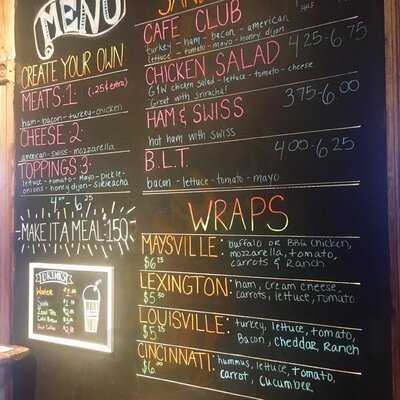 MENU
CREATE YOUR OWN
MEATS: 1 (.25¢ extra)
ham-bacon-turkey-chicken
CHEESE 2
american-swiss-mozzarella
TOPPINGS 3
lettuce-tomato-mayo-pickle-
onions-honey dijon-sirracha
4.00-6.25
MAKE IT A MEAL: 1.50
DRINKS
Water
Soda
Iced Tea
CAFE CLUB 4.25-6.75
turkey-ham-bacon-american
lettuce-tomato-mayo-honey dijon
CHICKEN SALAD
G1W chicken salad-lettuce-tomato-cheese
Great with sriracha!
HAM & SWISS 3.75-6.00
hot ham with swiss
B.L.T. 4.00-6.25
bacon-lettuce-tomato-mayo
WRAPS
MAYSVILLE: buffalo or BBQ chicken,
$6.25 mozzarella, tomato,
carrots & Ranch
LEXINGTON: ham, cream cheese,
$5.50 carrots, lettuce, tomato
LOUISVILLE: turkey, lettuce, tomato,
$5.25 Bacon, cheddar, Ranch
CINCINNATI: hummus, lettuce, tomato,
$6.00 carrot, cucumber